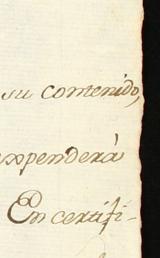 su contenido,
suspenderà
En certifi-